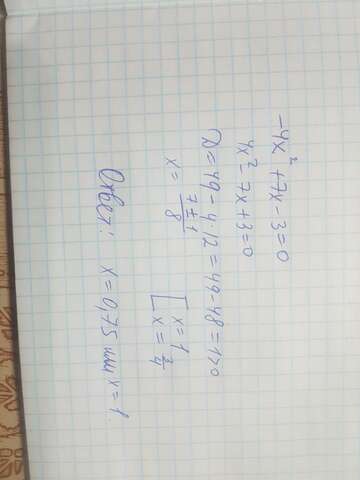 -4x²+7x-3=0
4x²-7x+3=0
D=49-4·12=49-48=1>0
x= 7±1/8 [ x=1 x=3/4
Ответ: x=0,75 или x=1.